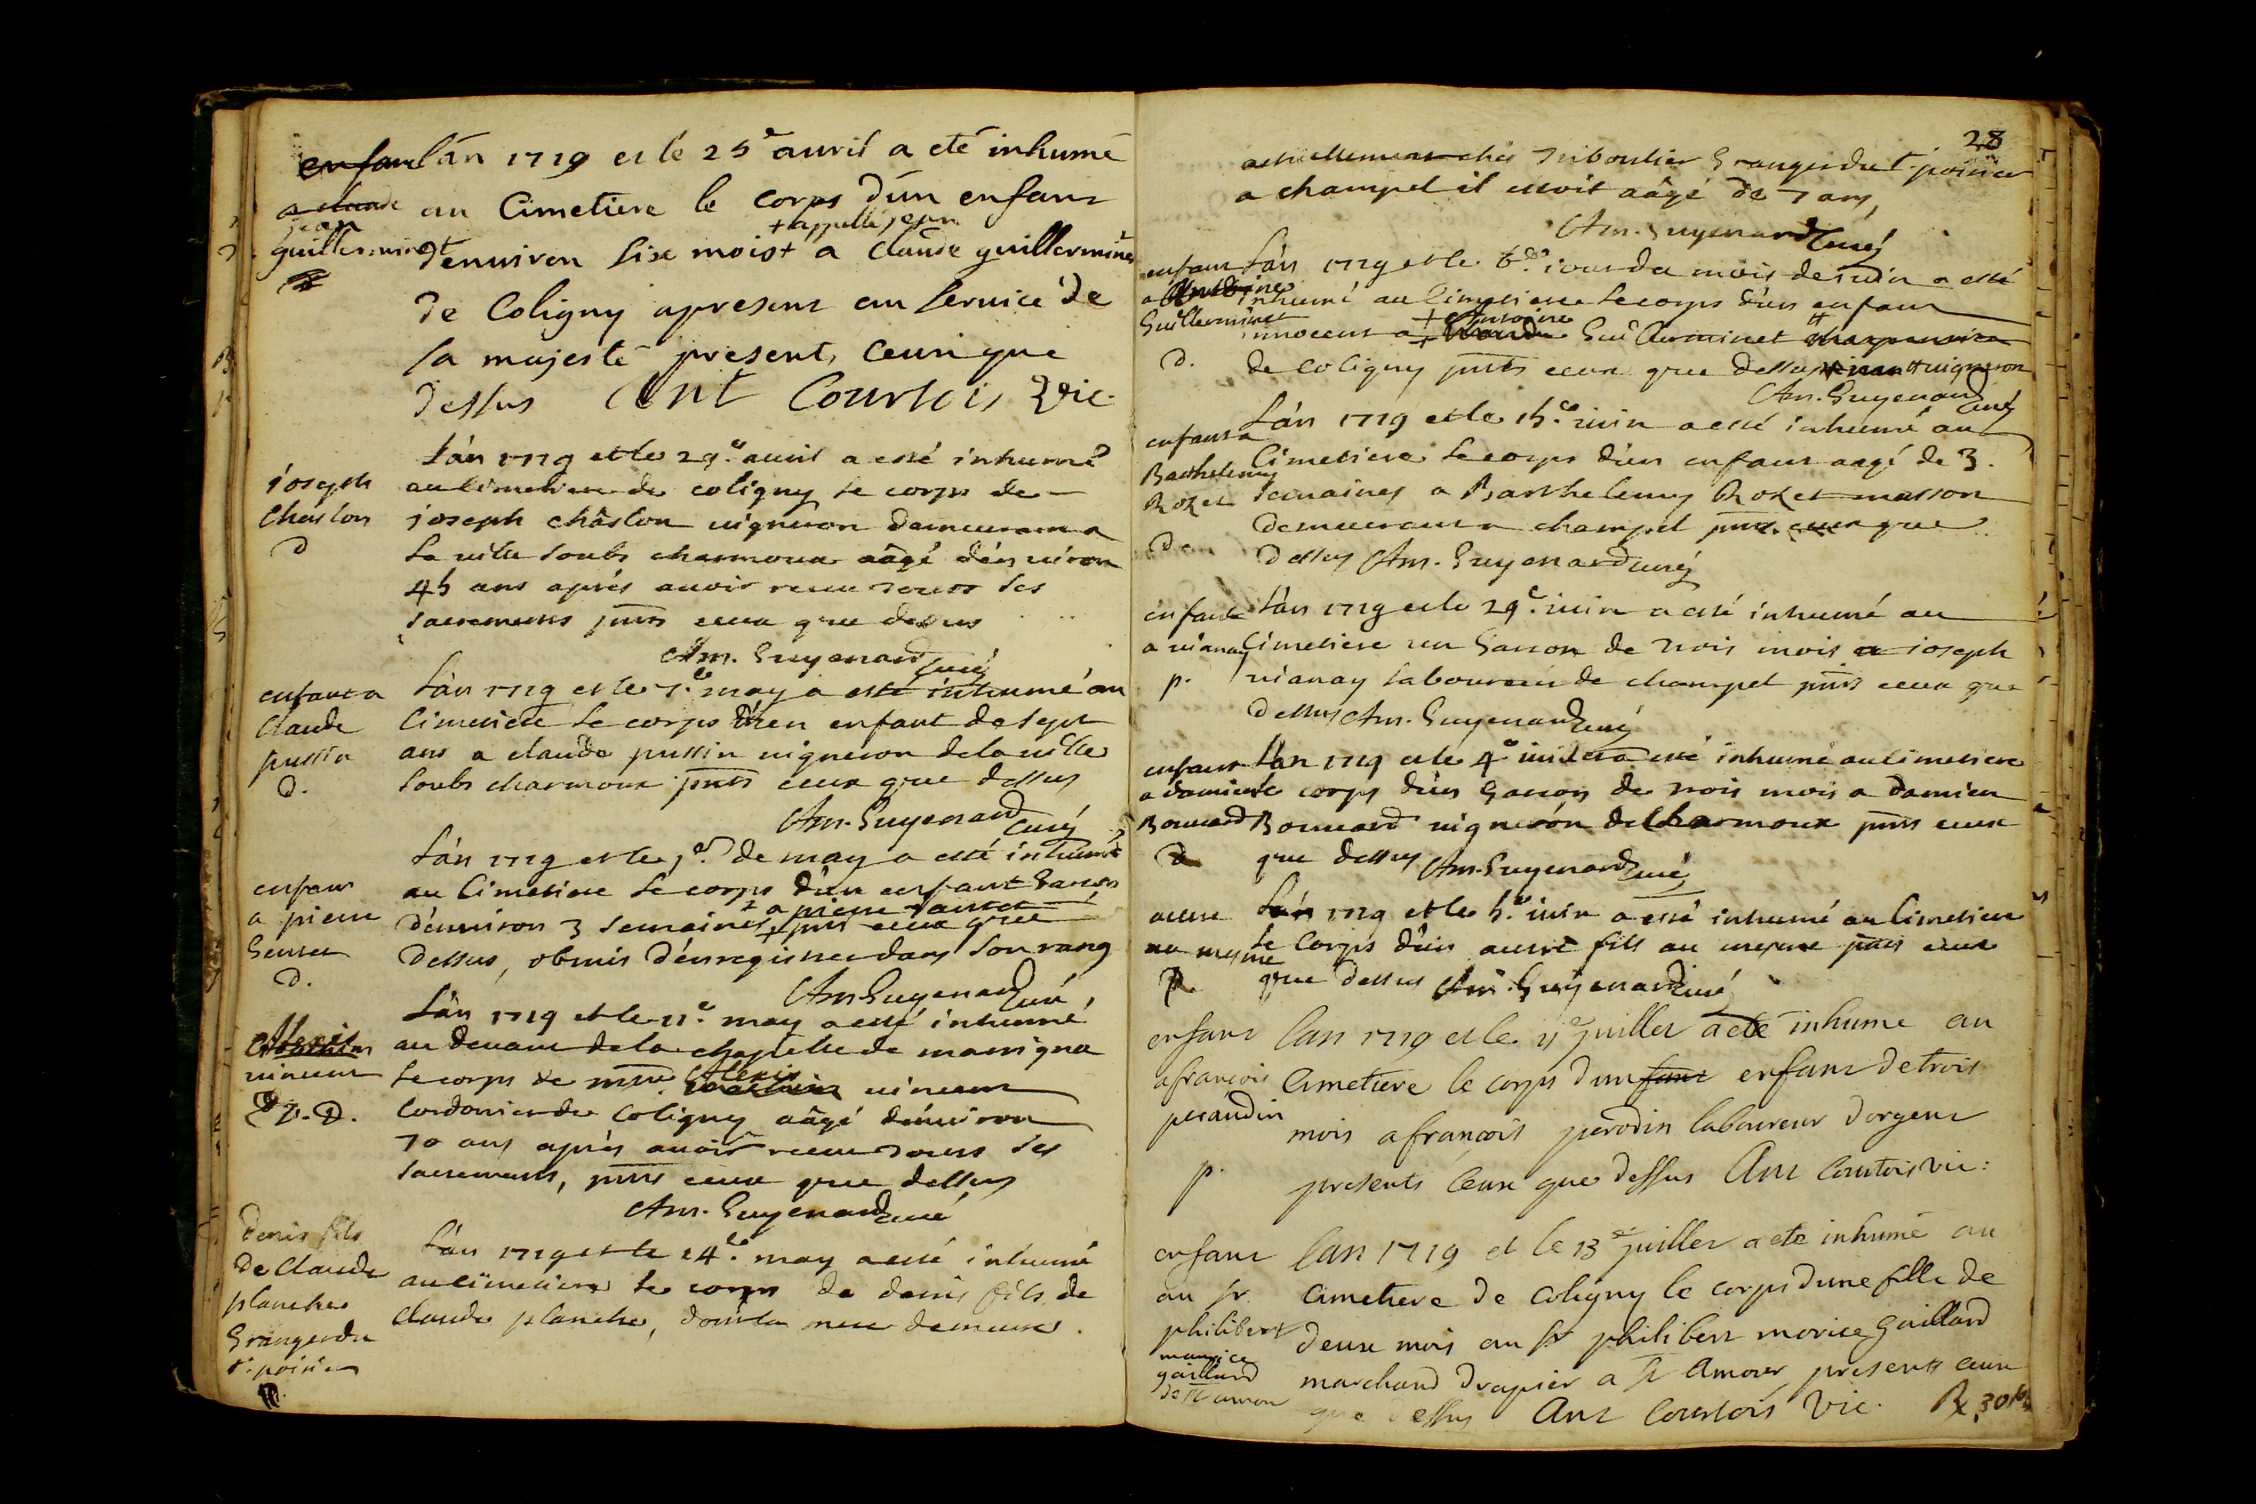 L'an 1719 et le 25e auril a eté inhumé
au Cimetiere le corps d'un enfant
+ appellé jean
d'enuiron Six mois + a claude guillerminet
de Coligny apresent au Seruice de
sa majesté present, ceux que
dessus Ant Courtois Vic.
enfant
a claude
jean
guillerminet
L'an 1719 et le 29.e auril a esté inhumé
au cimetiere de coligny le corps de
joseph châslon uigneron demeurant a
la uille soubs charmoux aâgé d'enuiron
45 ans aprés auoir receu touts ses
sacrements pnts ceux que dessus
Am. Guyenard curé
joseph
Chaslon
D
L'an 1719 et le 7.e may a esté inhumé au
Cimetiere le corps d'un enfant de sept
ans a claude pussin uigneron de la uille
soubs charmoux pnts ceux que dessus
Am. Guyenard curé
enfant a
Claude
pussin
D.
L'an 1719 et le 1.er de may a esté inhumé
au Cimetiere le corps d'un enfant garçon
+ a pierre
d'enuiron 3 semaines + pnts ceux que
dessus, obmis d'enregistrer dans son rang
Am Guyenard curé
enfant
a pierre
D.
L'an 1719 et le 11.e may a esté inhumé
au deuant de la chapelle de marrigna
Alexis
le corps de uincent
Cordonier de Coligny aâgé d'enuiron
70 ans aprés auoir receu touts ses
sacrements, pnts ceux que dessus
Am. Guyenard curé
Alexis
uincent
D.
L'an 1719 et le 14.e may a esté inhumé
au cimetiere le corps de denis fils de
claude planche, dont la mere demeure
Denis fils
De Claude
planche
Granger du
Sr. poisia
28
actuellement ches Triboulier Granger du Sr poisia
a champel il estoit aâgé de 7 ans,
Am. Guyenard Curé
L'an 1719 et le 6.e jour du mois de juin a esté
inhumé au cimetiere le corps d'un enfant
+ Antoine
innocent a + Claude Guillerminet charpentier
de Coligny pnts ceux que dessus uigneron
Am. Guyenard curé
enfant
a Antoine
Guillerminet
D.
L'an 1719 et le 15.e juin a esté inhumé au
Cimetiere le corps d'un enfant aagé de 3.
semaines a Barthelemy Rozet masson
demeurant a champel pnts. ceux que
dessus Am. Guyenard curé
enfant a
Barthelemy
Rozet
D
L'an 1719 et le 29.e juin a esté inhumé au
Cimetiere un Garçon de trois mois a joseph
uianay laboureur de champel pnts ceux que
dessus Am. Guyenard curé
enfant
a uianay
p.
L'an 1719 et le 4e juillet a esté inhumé au Cimetiere
le corps d'un Garçon de trois mois a Damien
Bouuard uigneron de Charmoux pnts ceux
que dessus Am. Guyenard curé
enfant
a damien
Bouuard
D
L'an 1719 et le 5.e juin a esté inhumé au Cimetiere
le Corps d'un autre fils au mesme pnts ceux
que dessus Am. Guyenard curé
autre
au mesme
Lan 1719 et le 11e juillet a eté inhume au
Cimetiere le corps dun enfant de trois
mois a françois perodin laboureur dorgent
presents Ceux que dessus Ant Courtois vic:
enfant
a françois
peraudin
p.
Lan 1719 et le 13e juillet a eté inhumé au
Cimetiere de coligny le corps dune fille de
deux mois au sr philibert morice Gaillard
marchand drapier a St Amour presents ceux
que dessus Ant Courtois Vic.
enfant
au sr.
philibert
maurice
gaillard
de St amour